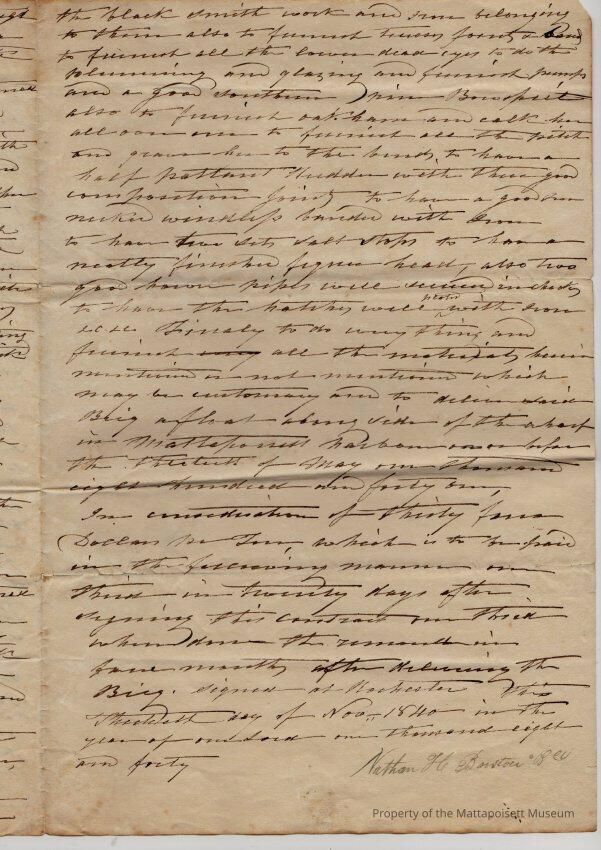 the black smith work and iron belonging
to them also to furnish
to furnish all the lower dead eyes to do the
plumming and glazing and furnish pumps
and a good southern pine Bowsprit
also to furnish oakham and calk her
all over one to furnish all the pitch
and grave her to the bends, to have a
half pattant Rudder with three good
composition to have a good iron
necked windlass banded with Iron
to have two sets to have a
neatly finished figure head, also two
good hawse pipes well
to have the hatches well with Iron
&c &c Finaly to do every thing and
furnish all the materials herein
mentioned or not mentioned which
may be customary and to deliver said
Brig afloat along side of the wharf
in Mattapoisett harbour on or before
the of May one thousand
eight hundred and forty one,
In consideration of thirty four
Dollars per Ton, which is to be paid
in the following manner one
third in twenty days after
signing this contract one third
when done the remainder in
four months after delivering the
Brig. signed at Rochester This
day of Nov,, 1840 in the
year of our Lord one thousand eight
and forty
Nathan H Barstow 1840
Property of the Mattapoisett Museum